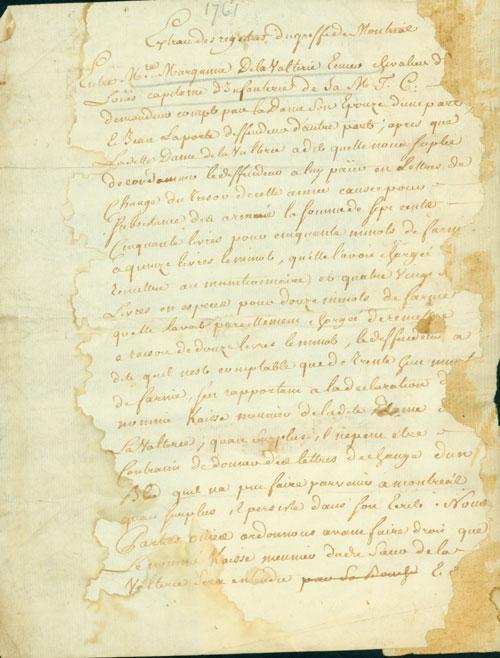 1761
Extrait des registres du greffe de Montréal
Entre Mre Marganne De la Valterie Ecuier chevalier d
Loüis capitaine d'Infanterie de Sa M. T. C.
demandeur compt par la Dame Son Epouze d'une part
E. Jean Laporte deffendeur d'autre part; apres que
Ladette Dame de la Valterie a dit quelle nous suplie
de condamner le deffendeur a luy païer en Lettres de
change du Tresor de cette année causes pour
Subsistance des armées la somme de Sept cents
Cinquante livres pour cinquante minots de farine
a quinze livres le minot, quelle l'avoit chargé
remettre au munitionnaire et quatre Vingt
Livres en especes pour douze minots de farine
quelle l'avoit pareillement chargé de remettre
a raison de douze livres le minot, le deffendeur a
dit quil n'este comptable que de trente minot
de farine, s'en raportant a la declaration d
nommé Kaisse meunier de ladite Dame
La Valterie; quau surplus, il ne peut etre
Contraint de donner des lettres de change d'un
Bled quil na pu faire parvenir a montreal
quau surplus, il persiste dans son Ecrit. Nous
Parties ouïes ordonnons avant faire droit que
Le nommé Kaisse meunier dudit Sieur de la
Valterie Sera entendu E